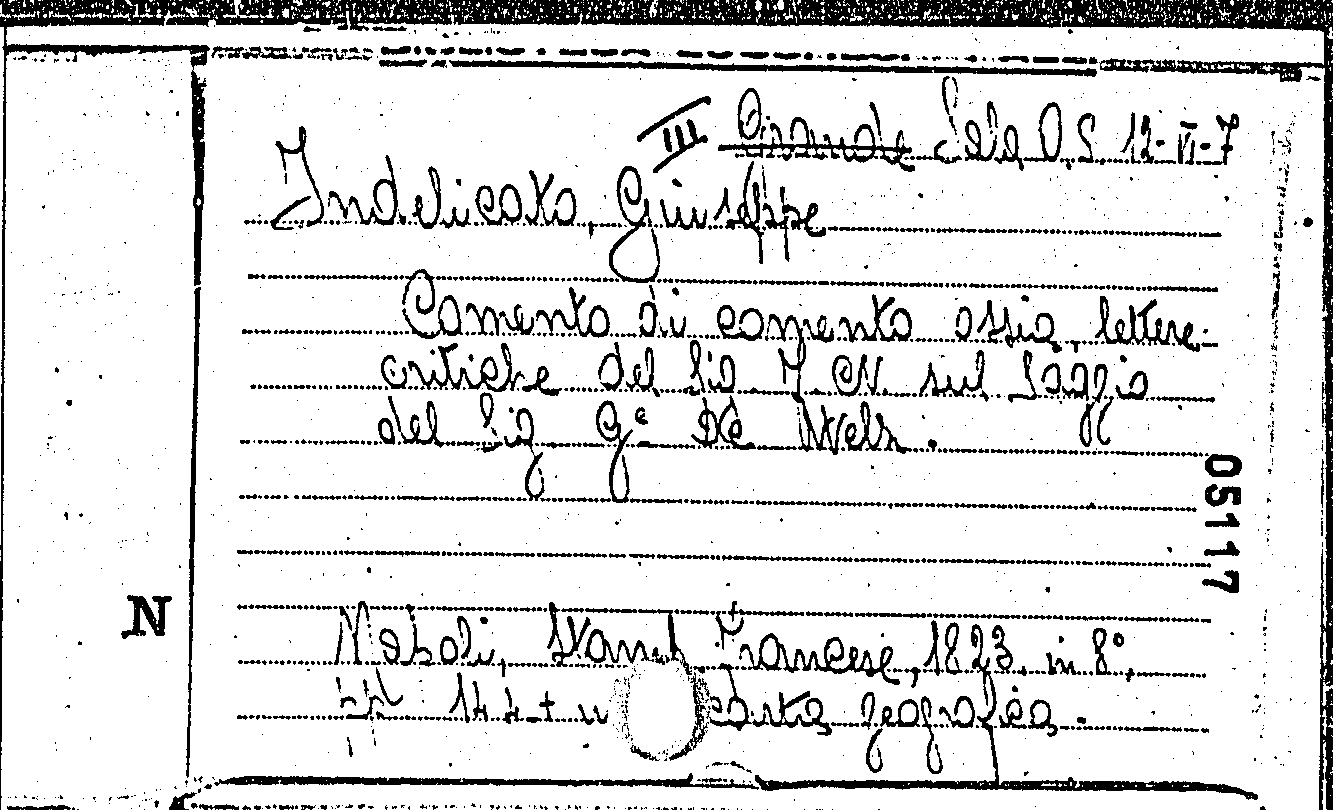 III Grande Sala O.S. 12-VI-7
Indelicato, Giuseppe
Comento di comento ossia lettere
critiche del Sig. I. N. sul Saggio
del Sig G.e De Welz.
05117
N
Napoli, Stamp. Francese, 1823. in 8°,
pp 144 + u carta geografica.